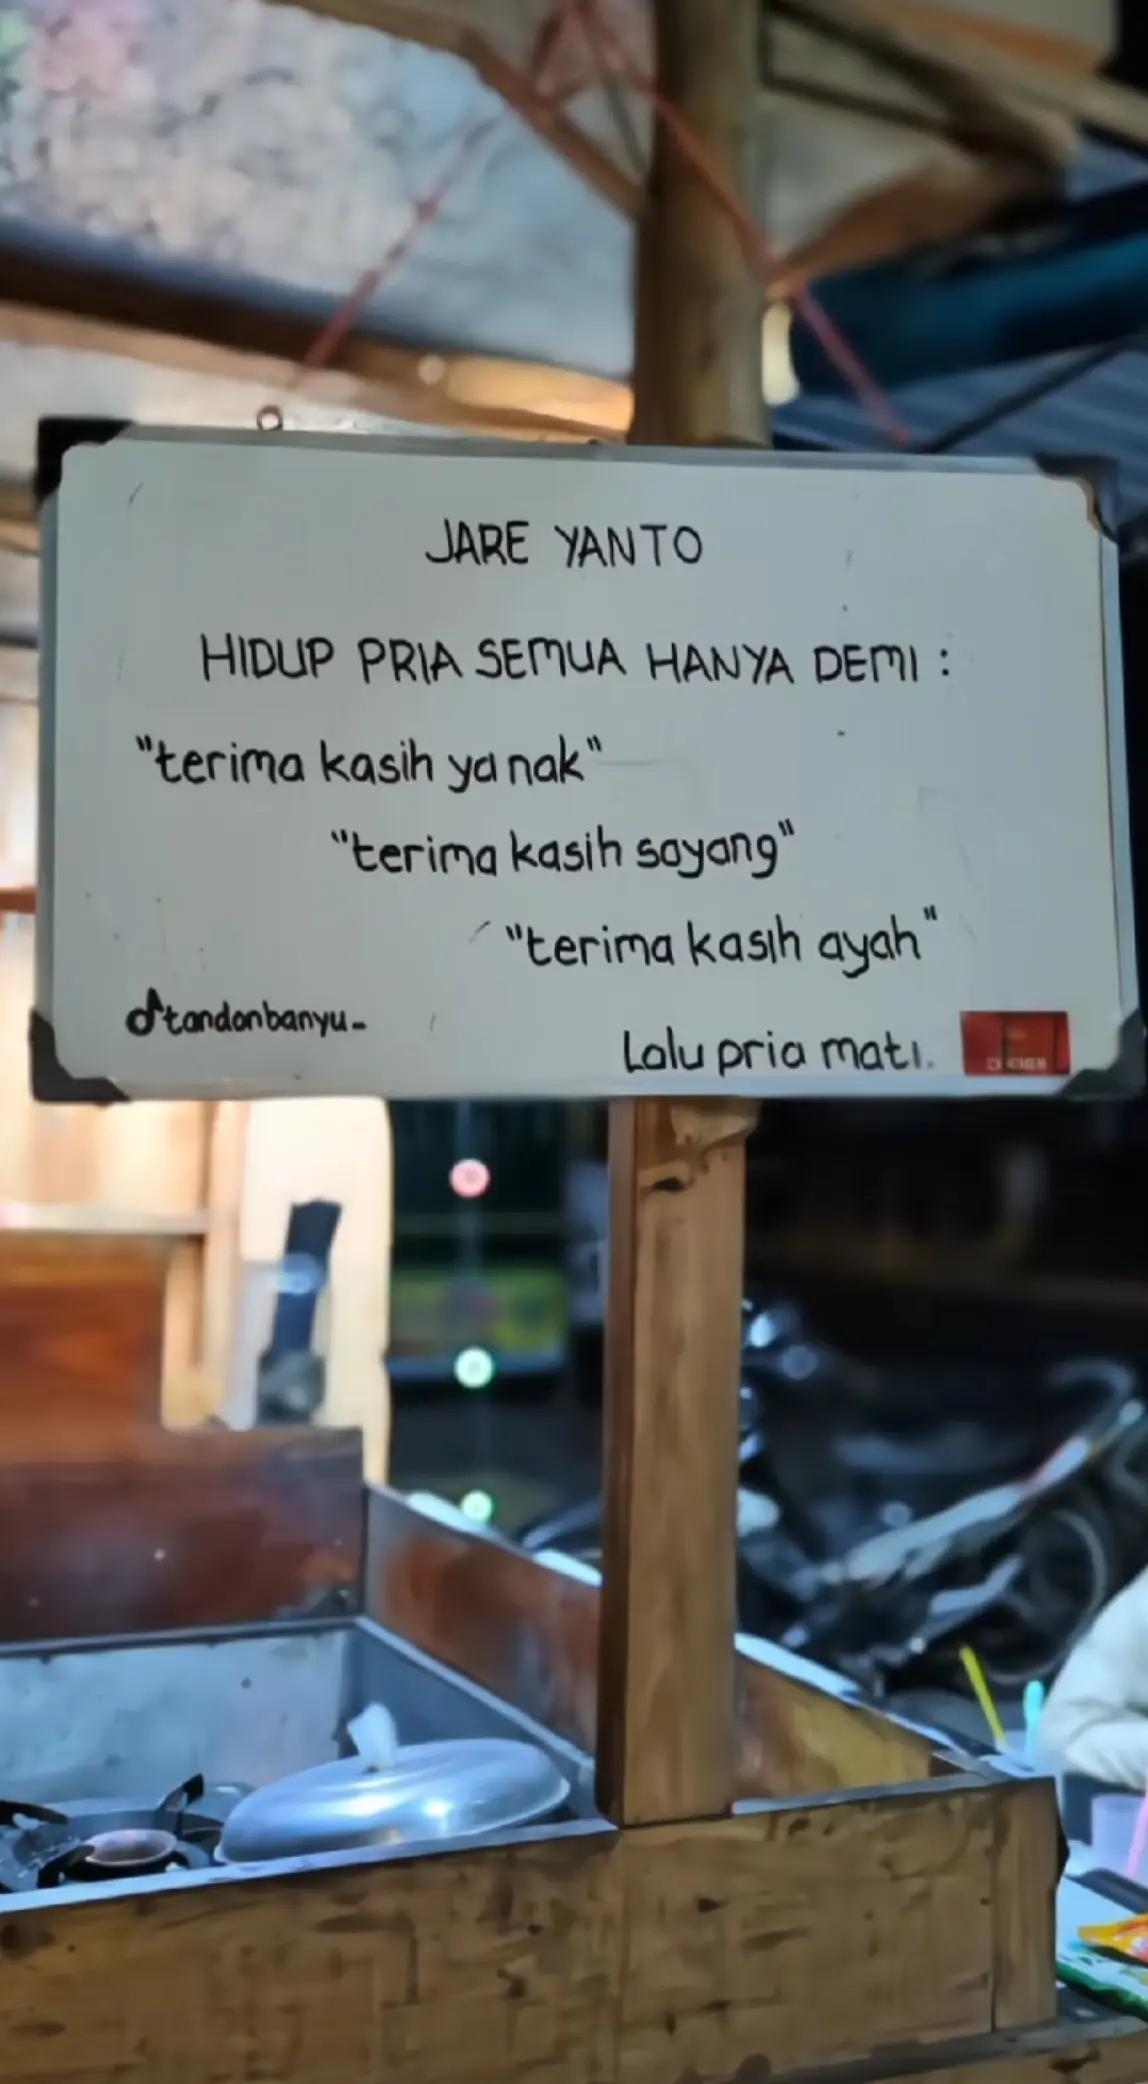 JARE YANTO
HIDUP PRIA SEMUA HANYA DEMI :
"terima kasih ya nak"
"terima kasih sayang"
"terima kasih ayah"
tandonbanyu_
Lalu pria mati.